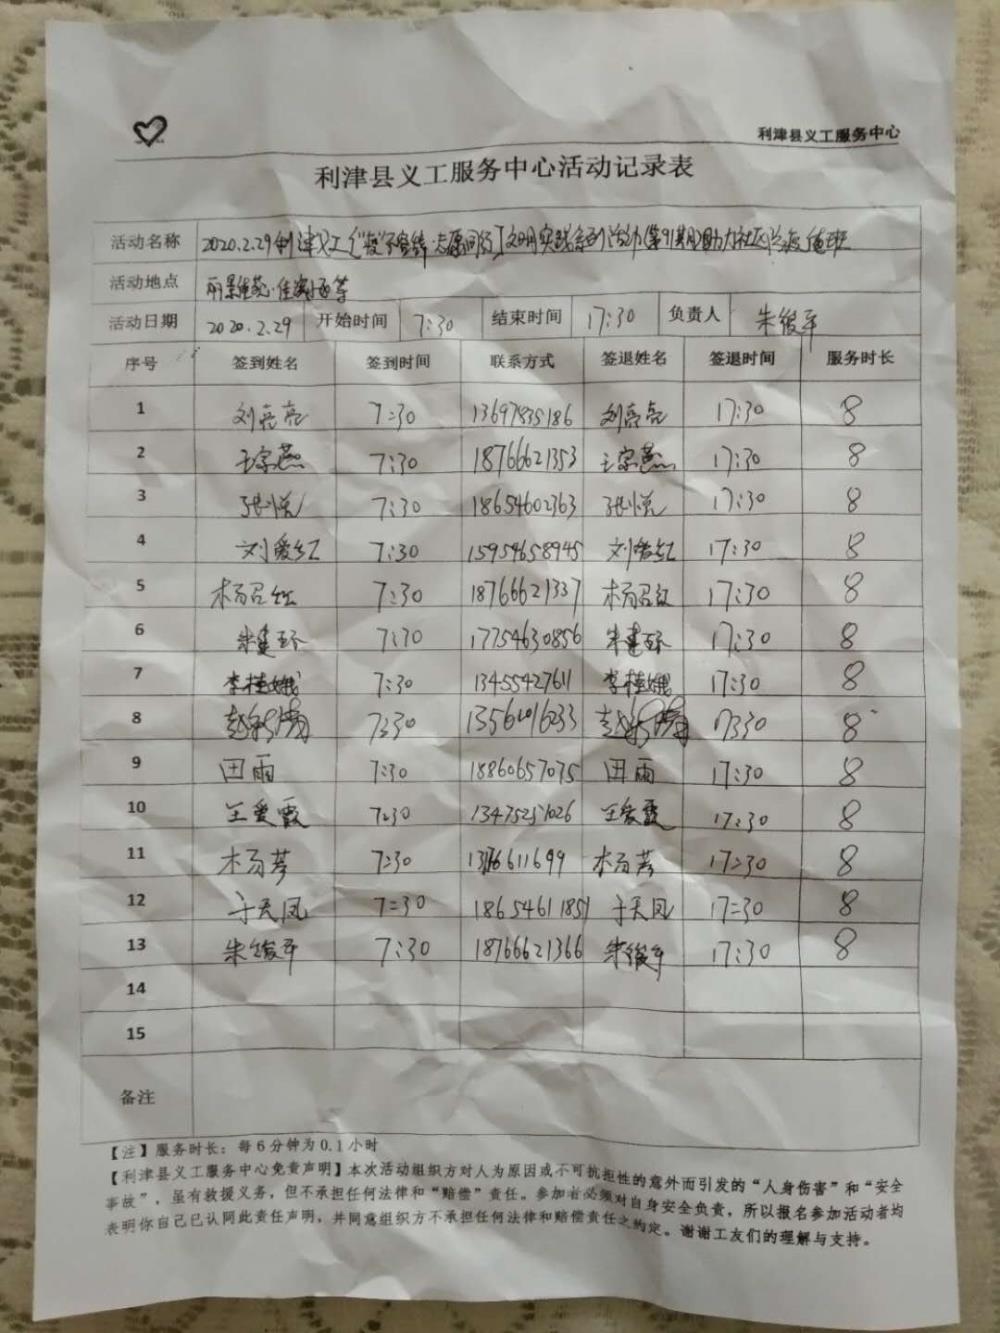 利津县义工服务中心
利津县义工服务中心活动记录表
活动名称 2020.2.29利津义工["疫"不容辞·志愿同行]文明实践系列活动(第91期)助力社区 值班
活动地点 丽景 小区等
活动日期 2020.2.29 开始时间 7:30 结束时间 17:30 负责人 朱俊平
序号 签到姓名 签到时间 联系方式 签退姓名 签退时间 服务时长
1 刘亮亮 7:30 13697835186 刘亮亮 17:30 8
2 王宗燕 7:30 18766621353 王宗燕 17:30 8
3 张悦 7:30 18654602363 张悦 17:30 8
4 刘爱红 7:30 15954658945 刘爱红 17:30 8
5 杨召红 7:30 18766621337 杨召红 17:30 8
6 朱建环 7:30 17754630856 朱建环 17:30 8
7 李桂娥 7:30 13455427611 李桂娥 17:30 8
8 赵 7:30 17:30 8
9 田雨 7:30 18860657075 田雨 17:30 8
10 王爱霞 7:30 13475251026 王爱霞 17:30 8
11 杨芳 7:30 杨芳 17:30 8
12 于天凤 7:30 18654611851 于天凤 17:30 8
13 朱俊平 7:30 18766621366 朱俊平 17:30 8
14
15
备注
【注】服务时长：每6分钟为0.1小时
【利津县义工服务中心免责声明】本次活动组织方对人为原因或不可抗拒性的意外而引发的“人身伤害”和“安全
事故”，虽有救援义务，但不承担任何法律和“赔偿”责任。参加者必须对自身安全负责，所以报名参加活动者均
表明你自己已认同此责任声明，并同意组织方不承担任何法律和赔偿责任之约定。谢谢工友们的理解与支持。